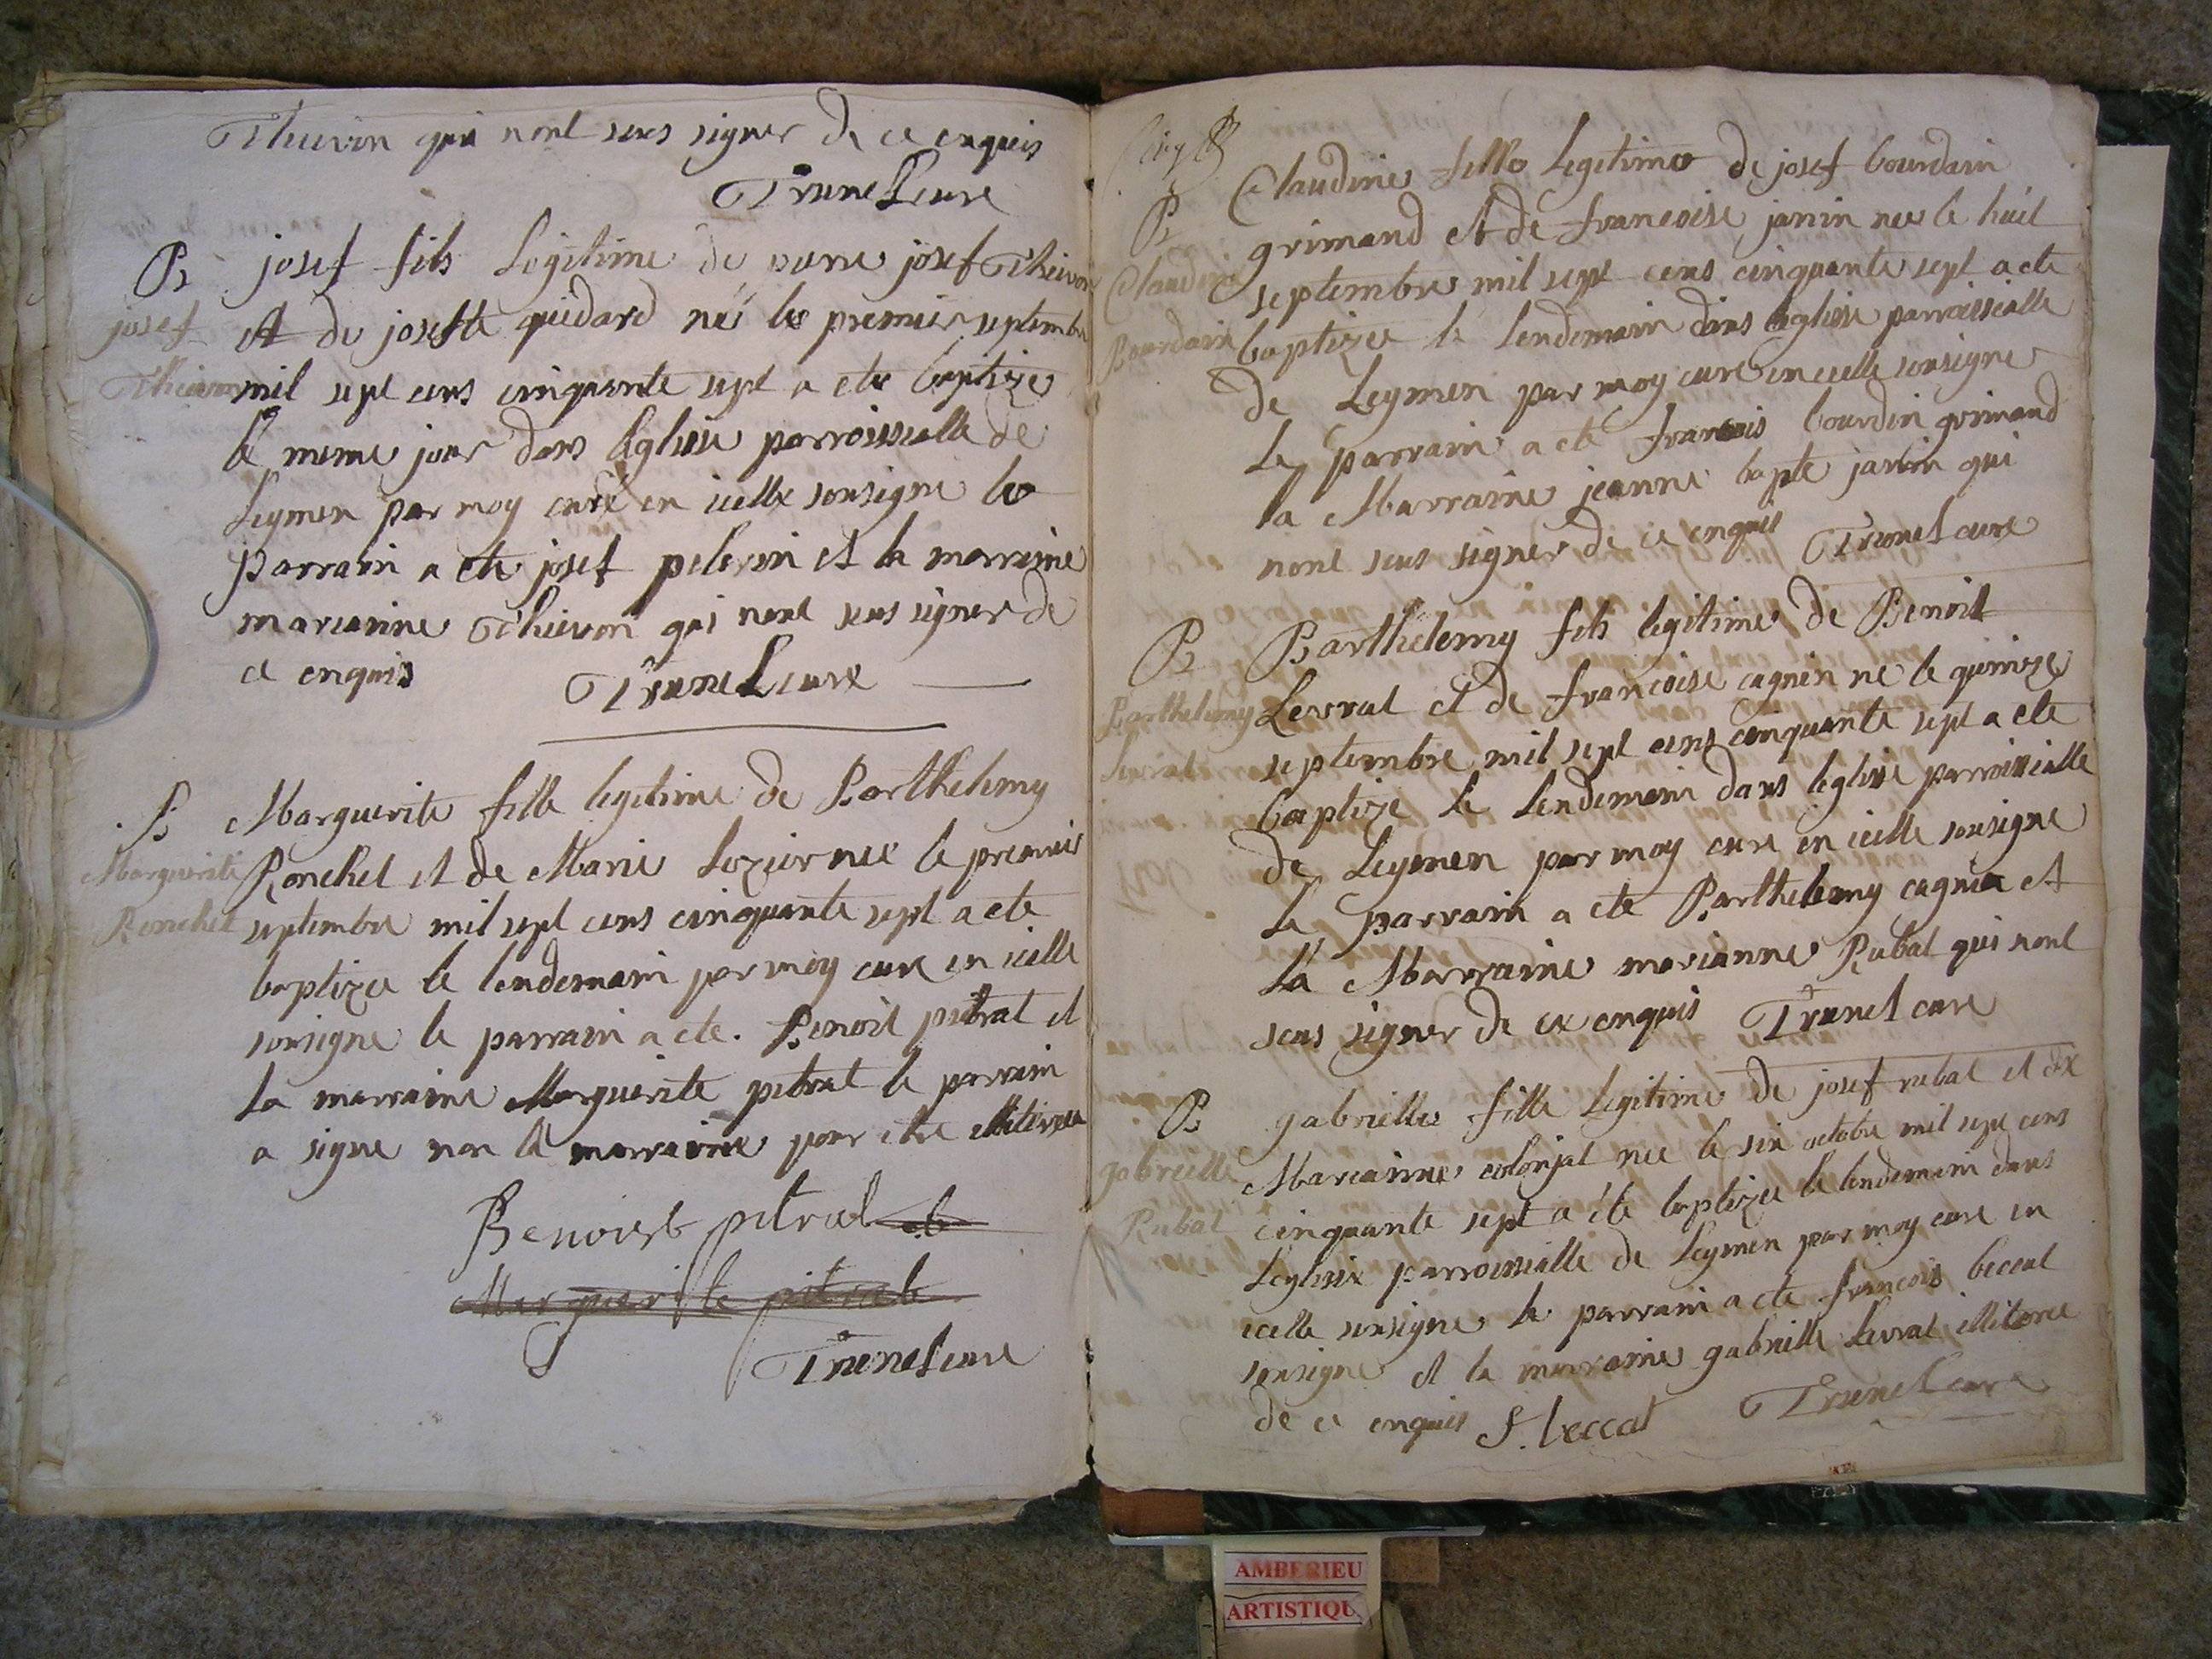 Thievon qui nont sceus signer de ce enquis
Trunel cure
B
josef
Thievon
josef fils Legitime de pierre josef Thievon
Et de josefte guidard né le premier septembre
mil sept cens cinquante sept a ete baptize
le meme jour dans leglisse parroissialle de
Leymen par moy curé en icelle sousigne le
parrain a ete josef pelerin et la marraine
marianne Thievon qui nont sceus signer de
ce enquis
Trunel cure
B
Marguerite
Ronchet
Marguerite fille legitime de Barthelemy
Ronchet et de Marie Lozier nee le premier
septembre mil sept cens cinquante sept a ete
baptizee le lendemain par moy cure en icelle
sousigne le parrain a ete. Benoit pitrat et
la marraine Marguerite pitrat le parrain
a signe non la marraine pour etre illiteree
Benoist pitrat et
Marguerite pitrat
Trunel cure
B
Claudine
Bourdain
Claudine fille Legitime de josef bourdain
grimand et de francoise janin nee le huit
septembre mil sept cens cinquante sept a ete
baptizee le lendemain dans leglisse parroissialle
de Leymen par moy cure en icelle sousigne
Le parrain a ete francois bourdin grimand
la Marraine jeanne bapte janin qui
nont sceus signer de ce enquis Trunel cure
B
Barthelemy
Levrat
Barthelemy fils legitime de Benoit
Levrat et de francoise cagnin ne le quinze
septembre mil sept cens cinquante sept a ete
baptize le lendemain dans leglisse parroissialle
de Leymen par moy cure en icelle sousigne
Le parrain a ete Barthelemy cagnin et
La Marraine marianne Rubat qui nont
sceus signer de ce enquis Trunel cure
B
gabrielle
Rubat
gabrielle fille Legitime de josef rubat et de
Marianne colonjat nee le six octobre mil sept cens
cinquante sept a éte baptizee le lendemain dans
Leglisse parroissialle de Leymen par moy cure en
icelle sousigne le parrain a ete francois beccat
sousigne et la marraine gabrielle Levrat illiteree
de ce enquis f. beccat Trunel cure
AMBERIEU
ARTISTIQU